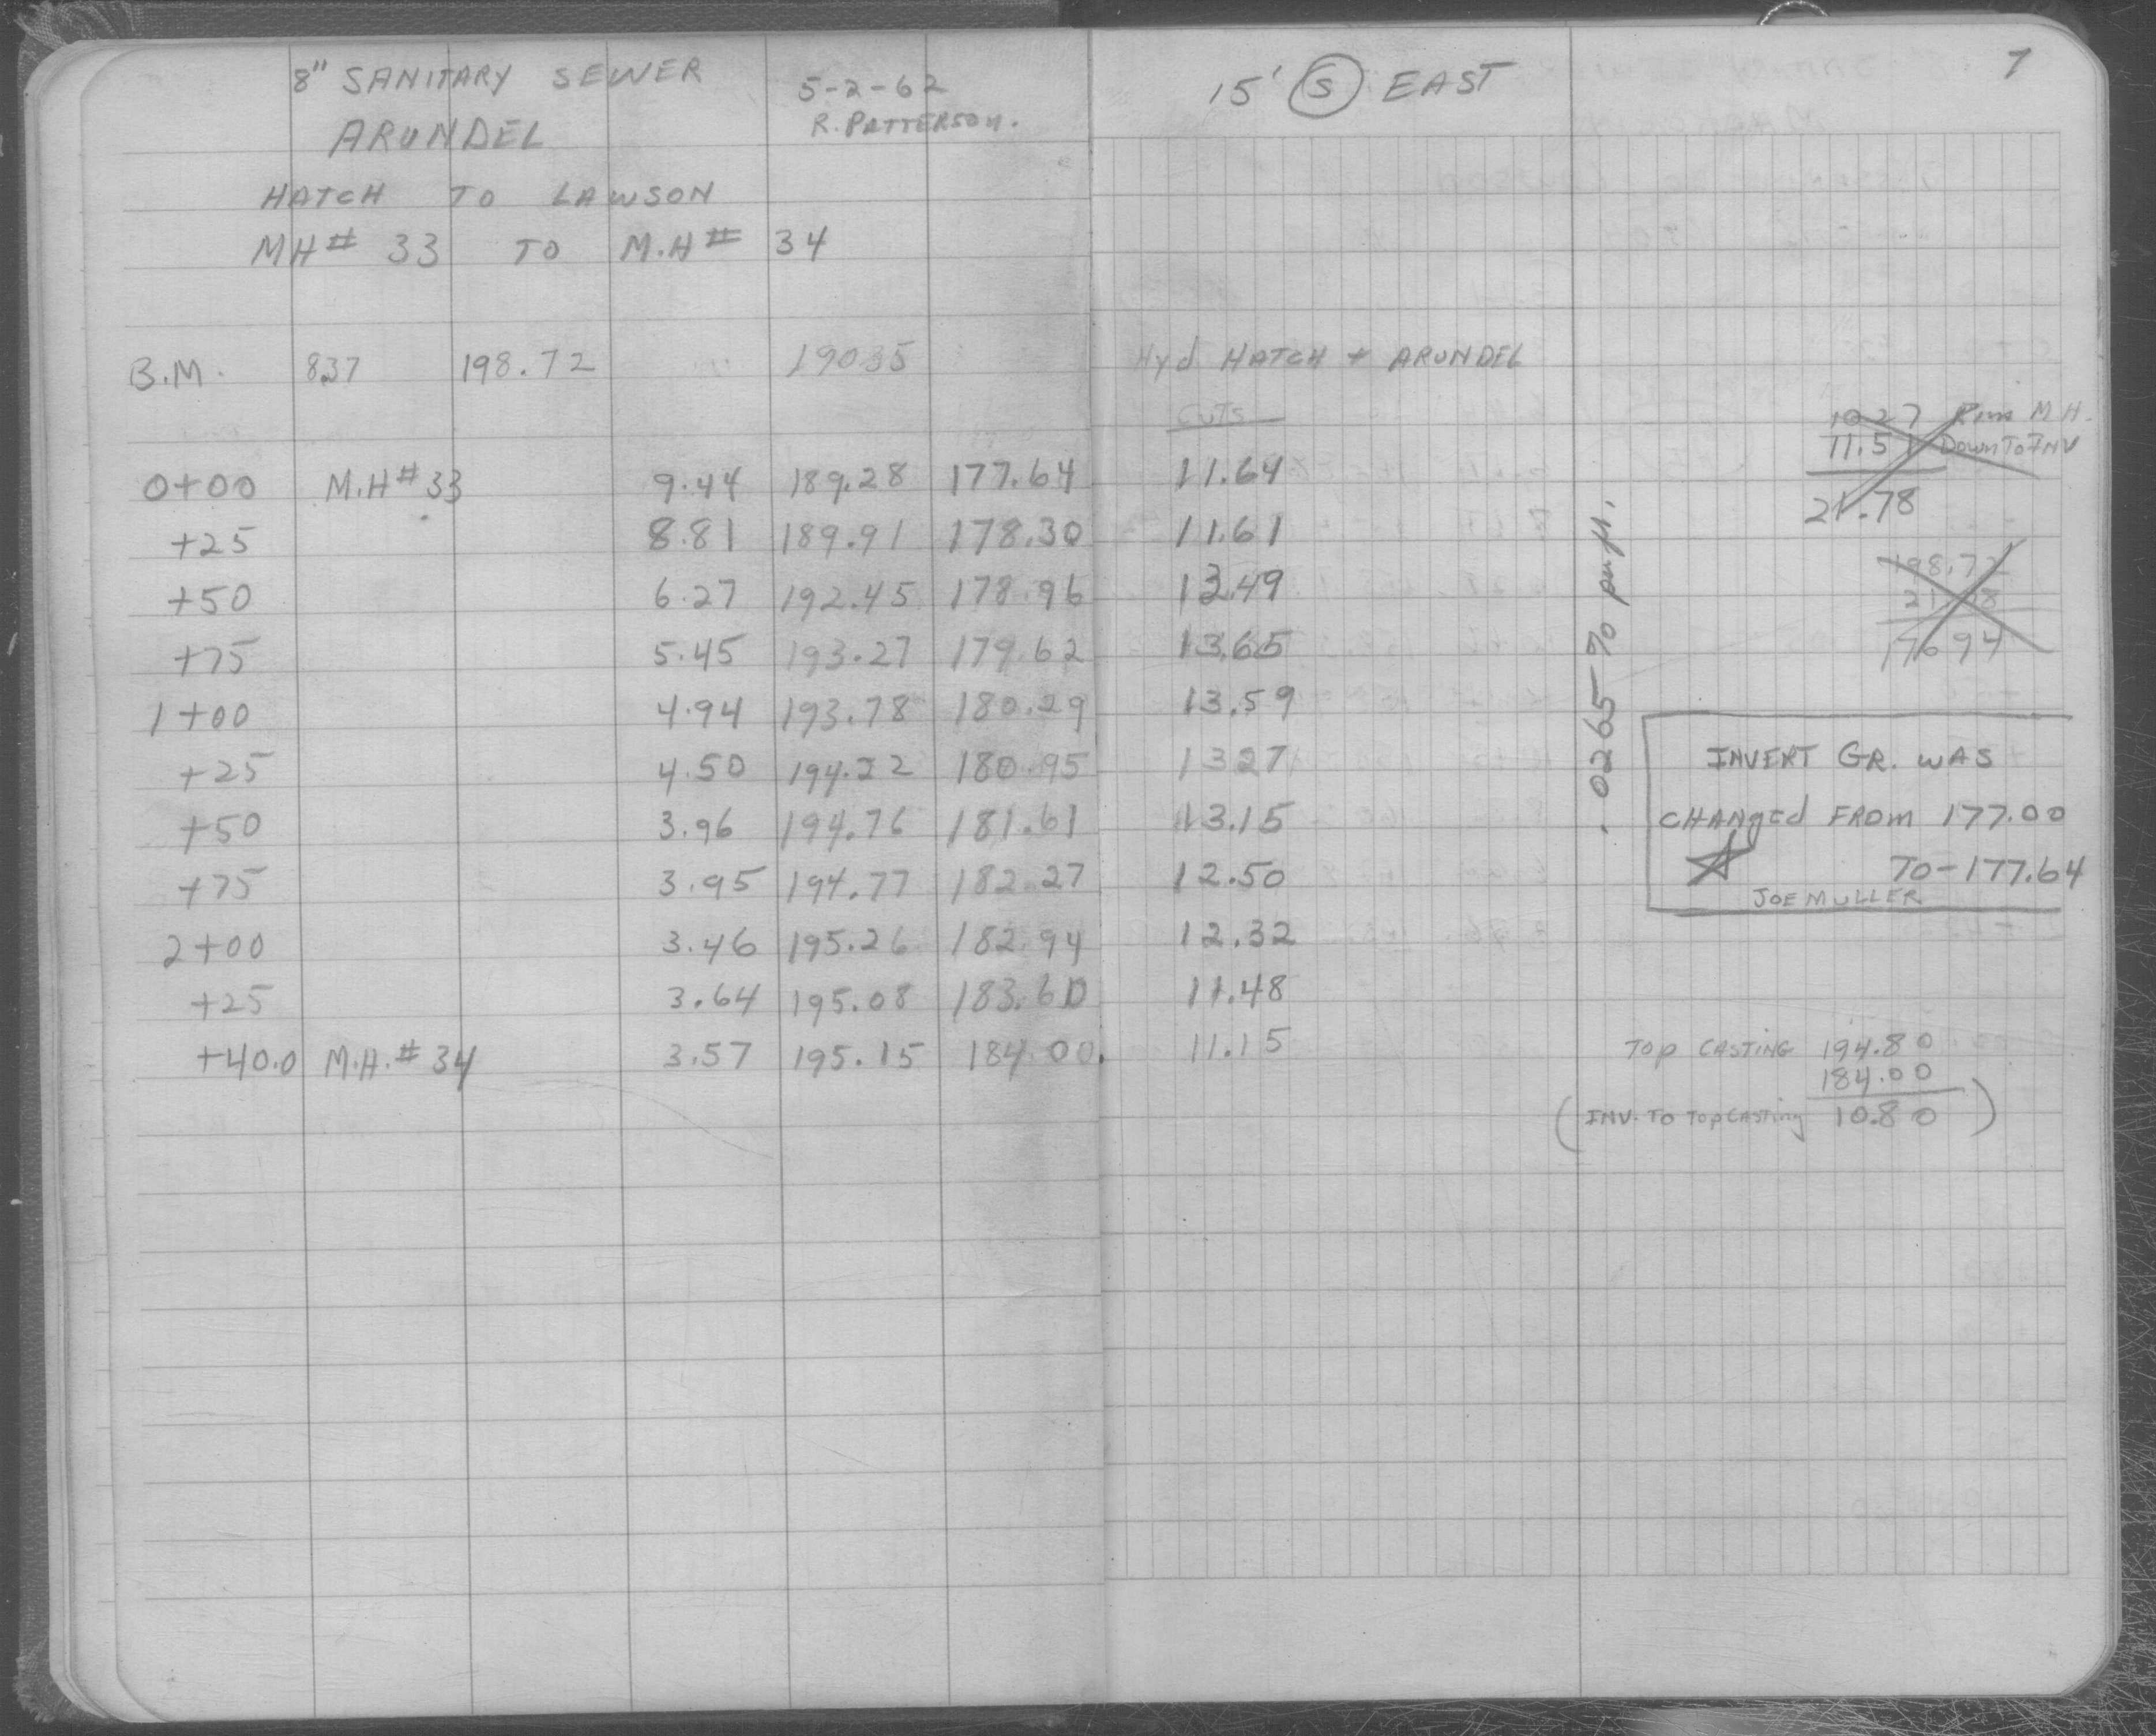 8" SANITARY SEWER 5-2-62 15' Ⓢ EAST 7
ARUNDEL R. PATTERSON.
HATCH TO LAWSON
MH# 33 TO M.H# 34
B.M. 8.37 198.72 190.35 Hyd HATCH + ARUNDEL
CUTS
10.27 Rim M.H.
11.51 Down To INV
21.78
0+00 M.H# 33 9.44 189.28 177.64 11.64
+25 8.81 189.91 178.30 11.61
+50 6.27 192.45 178.96 13.49
+75 5.45 193.27 179.62 13.65
1+00 4.94 193.78 180.29 13.59
+25 4.50 194.22 180.95 13.27
+50 3.96 194.76 181.61 13.15
+75 3.95 194.77 182.27 12.50
2+00 3.46 195.26 182.94 12.32
+25 3.64 195.08 183.60 11.48
+40.0 M.H.# 34 3.57 195.15 184.00. 11.15
.0265 % per ft.
198.72
21.78
176.94
INVERT GR. WAS
CHANGEd FROM 177.00
TO-177.64
JOE MULLER
TOP CASTING 194.80
184.00
(INV. TO TOP CASTING 10.80)